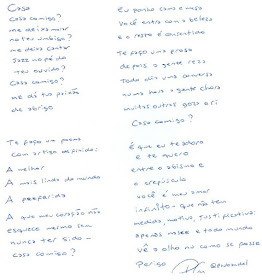 Casa
casa comigo?
me deixa morar
no teu umbigo?
me deixa cantar
jazz no pé do
teu ouvido?
Casa comigo?
me dá teu peixão
de abrigo
Te faço um poema
com artigo definido:
A melhor
A mais linda do mundo
A preferida
A que meu coração não
esquece mesmo sem
nunca ter sido -
casa comigo?
Eu ponho cama e mesa
Você entra com a beleza
e o resto é consentido
Te faço uma prosa
depois a gente reza
Todo dia uma conversa
numa hora a gente chora
muitas outras goza e ri
Casa comigo?
é que eu te adoro
e te quero
entre o abismo e
o crepúsculo
você é meu amor
infinito - que não tem
medida, motivo, justificativa:
apenas nasce e todo mundo
vê a olho nu como se fosse
Perigo